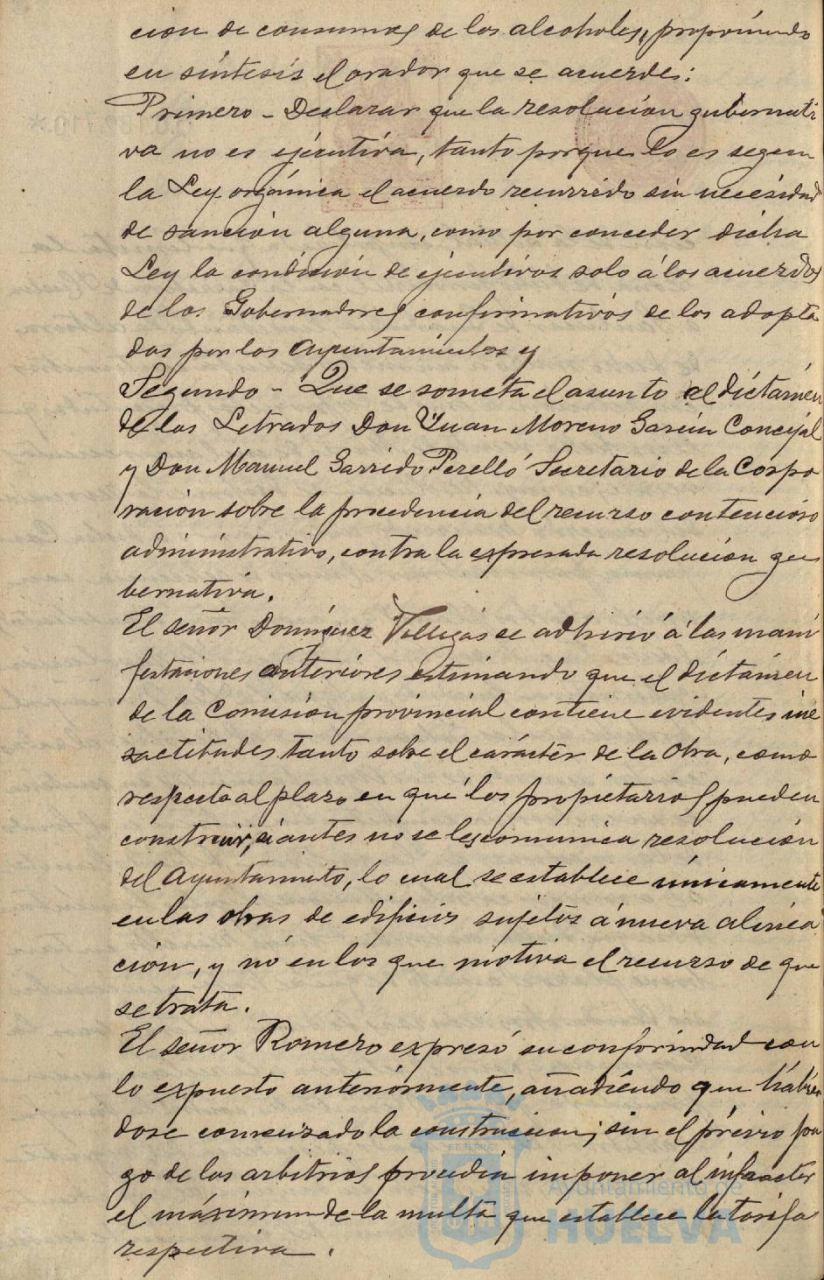 cion de consumos de los alcoholes, proponiendo
en síntesis el orador que se acuerde:
Primero - Declarar que la resolución gubernati
va no es ejecutiva, tanto porque lo es segun
la Ley orgánica el acuerdo recurrido sin necesidad
de sanción alguna, como por conceder dicha
Ley la condición de ejecutivos solo á los acuerdos
de los Gobernadores confirmativos de los adopta
dos por los Ayuntamientos y
Segundo - Que se someta el asunto al dictámen
de los Letrados Don Juan Moreno García Concejal
y Don Manuel Garrido Perelló Secretario de la Corpo
ración sobre la procedencia del recurso contencioso
administrativo, contra la expresada resolución gu
bernativa.
El señor Domínguez se adhirió á las mani
festaciones anteriores estimando que el dictámen
de la Comisión provincial contiene evidentes ine
xactitudes tanto sobre el carácter de la obra, como
respecto al plazo en que los propietarios pueden
construir, si antes no se les comunica resolución
del Ayuntamiento, lo cual se establece únicamente
en las obras de edificios sujetos á nueva alinea
ción, y nó en los que motiva el recurso de que
se trata.
El señor Romero expresó su conformidad con
lo expuesto anteriormente, añadiendo que habién
dose comenzado la construccion, sin el prévio pa
go de los arbitrios procedía imponer al infractor
el máximum de la multa que establece la tarifa
respectiva.
Ayuntamiento de
HUELVA